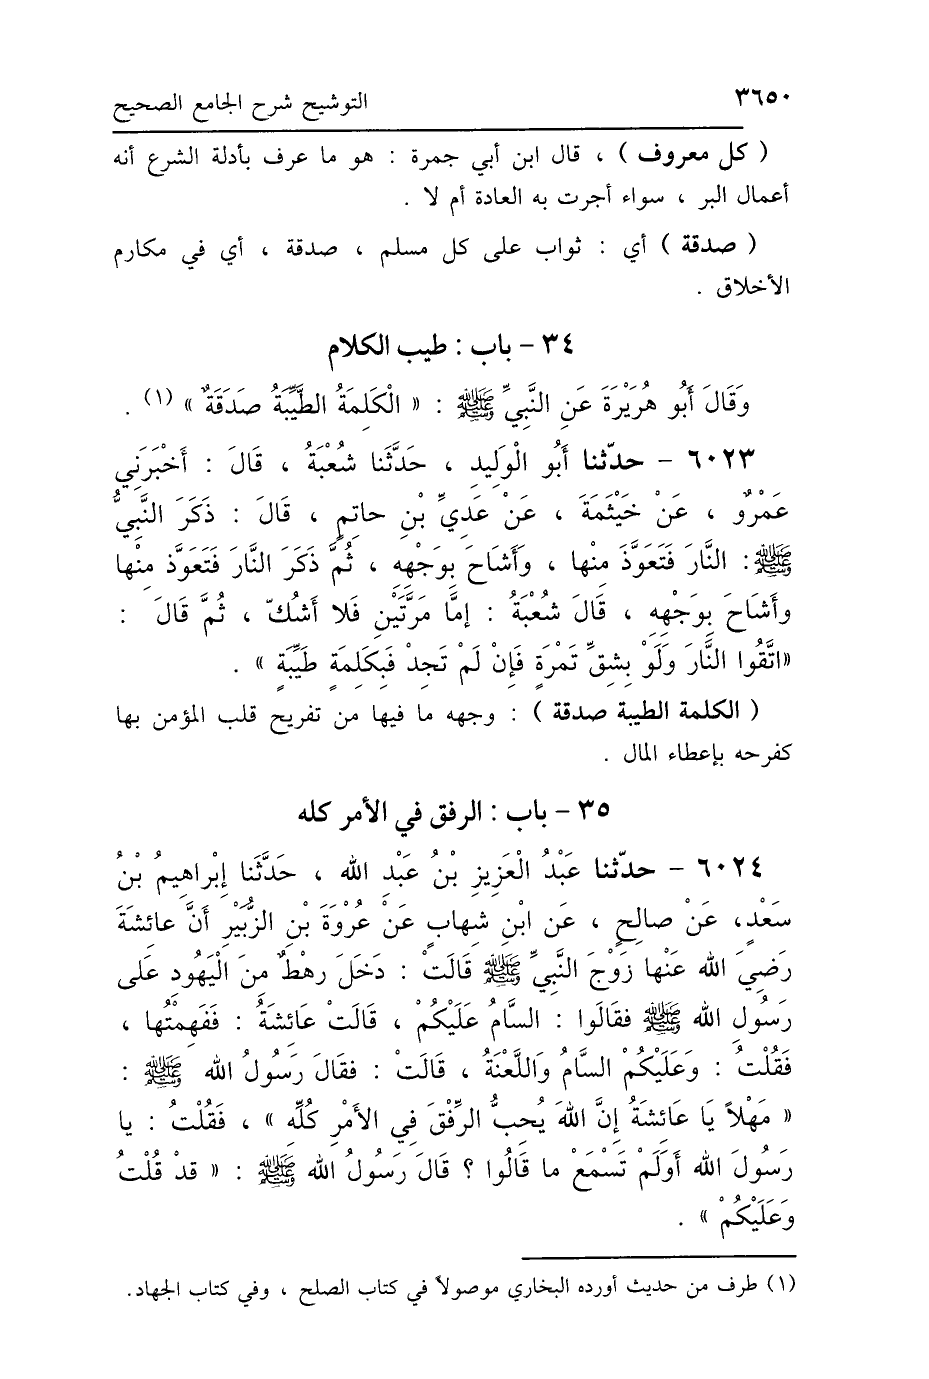 ٣٦٥٠ التوشيح شرح الجامع الصحيح
( كل معروف ) ، قال ابن أبي جمرة : هو ما عرف بأدلة الشرع أنه
أعمال البر ، سواء أجرت به العادة أم لا .
( صدقة ) أي : ثواب على كل مسلم ، صدقة ، أي في مكارم
الأخلاق .
٣٤ - باب : طيب الكلام
وَقَالَ أَبُو هُرَيْرَةَ عَنِ النَّبِيِّ ﷺ : « الْكَلِمَةُ الطَّيِّبَةُ صَدَقَةٌ » (١) .
٦٠٢٣ - حدّثنا أَبُو الْوَلِيدِ ، حَدَّثَنا شُعْبَةُ ، قَالَ : أَخْبَرَنِي
عَمْرٌو ، عَنْ خَيْثَمَةَ ، عَنْ عَدِيِّ بْنِ حاتِمٍ ، قَالَ : ذَكَرَ النَّبِيُّ
ﷺ: النَّارَ فَتَعَوَّذَ مِنْها ، وَأَشَاحَ بِوَجْهِهِ ، ثُمَّ ذَكَرَ النَّارَ فَتَعَوَّذ مِنْها
وأَشَاحَ بِوَجْهِهِ ، قَالَ شُعْبَةُ : إمَّا مَرَّتَيْنِ فَلا أَشُكّ ، ثُمَّ قَالَ :
«اتَّقُوا النَّارَ وَلَوْ بِشِقِّ تَمْرَةٍ فَإنْ لَمْ تَجِدْ فَبِكَلِمَةٍ طَيِّبَةٍ » .
( الكلمة الطيبة صدقة ) : وجهه ما فيها من تفريح قلب المؤمن بها
كفرحه بإعطاء المال .
٣٥ - باب : الرفق في الأمر كله
٦٠٢٤ - حدّثنا عَبْدُ الْعَزِيزِ بْنُ عَبْدِ الله ، حَدَّثَنا إبْراهِيمُ بْنُ
سَعْدٍ، عَنْ صالِحٍ ، عَن ابْنِ شهابٍ عَنْ عُرْوَةَ بْنِ الزُّبَيْرِ أَنَّ عائشَةَ
رَضِيَ الله عَنْها زَوْجَ النَّبِيِّ ﷺ قَالَتْ : دَخَلَ رهْطٌ منَ الْيَهُودِ عَلى
رَسُولِ الله ﷺ فقَالَوا : السَّامُ عَلَيْكُمْ ، قَالَتْ عَائشَةُ : فَفَهِمْتُها ،
فَقُلْتُ : وَعَلَيْكُمْ السَّامُ وَاللَّعْنَةُ ، قَالَتْ : فقَالَ رَسُولُ الله ﷺ :
« مَهْلاً يَا عَائشَةُ إنَّ اللهَ يُحبُّ الرِّفْقَ فِي الأَمْرِ كُلِّهِ » ، فَقُلْتُ : يا
رَسُولَ الله أَوَلَمْ تَسْمَعْ ما قَالُوا ؟ قَالَ رَسُولُ الله ﷺ : « قدْ قُلْتُ
وَعَلَيْكُمْ » .
(١) طرف من حديث أورده البخاري موصولاً في كتاب الصلح ، وفي كتاب الجهاد.